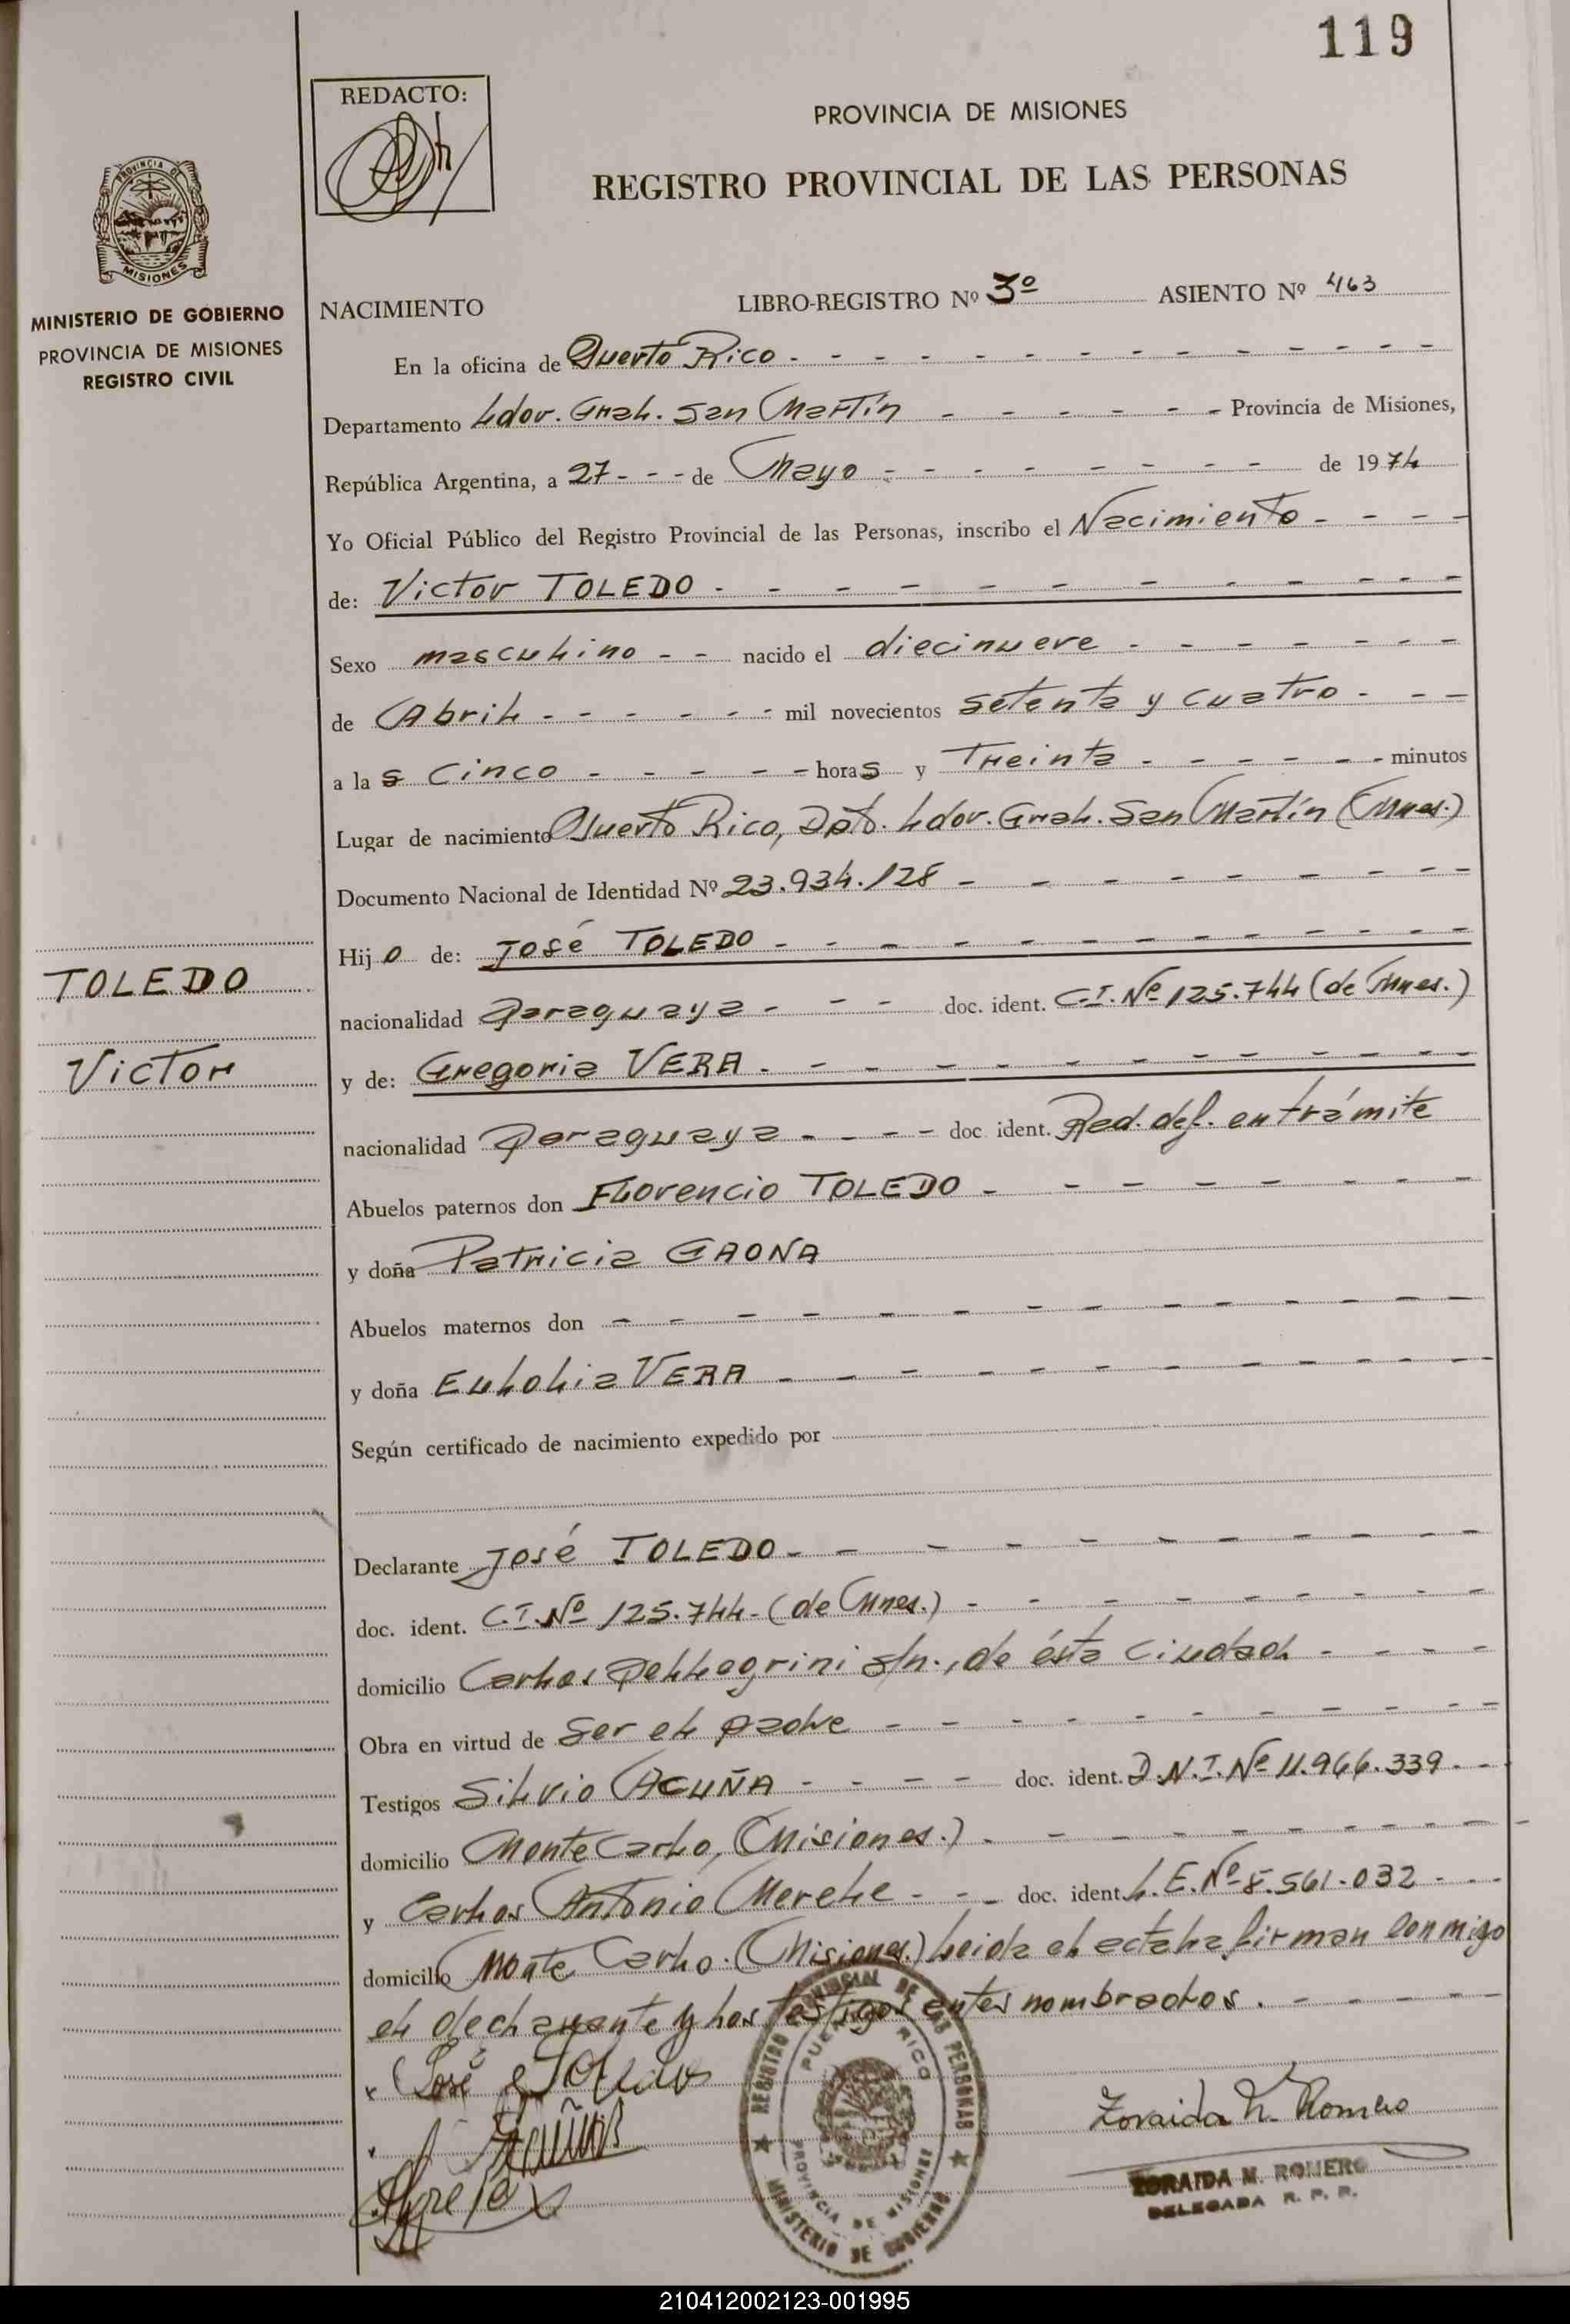 119
REDACTO:
PROVINCIA DE MISIONES
REGISTRO PROVINCIAL DE LAS PERSONAS
PROVINCIA D
MISIONES
MINISTERIO DE GOBIERNO
PROVINCIA DE MISIONES
REGISTRO CIVIL
NACIMIENTO LIBRO-REGISTRO Nº 3º ASIENTO Nº 463
En la oficina de Puerto Rico - - - - - - - - - - - - -
Departamento Ldor. Gral. San Martín - - - - - - Provincia de Misiones,
República Argentina, a 27 - - - de Mayo - - - - - - - - de 1974
Yo Oficial Público del Registro Provincial de las Personas, inscribo el Nacimiento - - - -
de: Victor TOLEDO - - - - - - - - - - -
Sexo masculino - - nacido el diecinueve - - - - - - -
de Abril - - - - - - mil novecientos setenta y cuatro - - -
a las cinco - - - - - horas y Treinta - - - - - - minutos
Lugar de nacimiento Puerto Rico, Dpto. Ldor. Gral. San Martín (Mnes.)
Documento Nacional de Identidad Nº 23.934.128 - - - - - - - - -
Hijo de: José TOLEDO - - - - - - - - - - - -
TOLEDO
nacionalidad Paraguaya - - - doc. ident. C.I. Nº 125.744 (de Mnes.)
Victor
y de: Gregoria VERA - - - - - - - - - - - -
nacionalidad Paraguaya - - - - doc. ident. Rad. def. en trámite
Abuelos paternos don Florencio TOLEDO - - - - - - - -
y doña Patricia GAONA
Abuelos maternos don - - - - - - - - - - - - - -
y doña Eulolia VERA - - - - - - - - - - -
Según certificado de nacimiento expedido por
Declarante José TOLEDO - - - - - - - - - -
doc. ident. C.I. Nº 125.744 - (de Mnes.) - - - - - - - -
domicilio Carlos Pellegrini s/n., de ésta Ciudad - - - -
Obra en virtud de ser el padre - - - - - - - - - -
Testigos Silvio ACUÑA - - - - doc. ident. D.N.I. Nº 11.966.339 - -
domicilio Monte Carlo, (Misiones.) - - - - - - - - - -
y Carlos Antonio Merele - - - doc. ident. L.E. Nº 8.561.032 - - -
domicilio Monte Carlo. (Misiones.) leida el acta la firman conmigo
el declarante y los testigos antes nombrados. - - - - -
x José Toledo
x Acuña
Zoraida M. Romero
ZORAIDA M. ROMERO
DELEGADA R. P. P.
REGISTRO PROVINCIAL DE LAS PERSONAS
PUERTO RICO
PROVINCIA DE MISIONES
MINISTERIO DE GOBIERNO
210412002123-001995